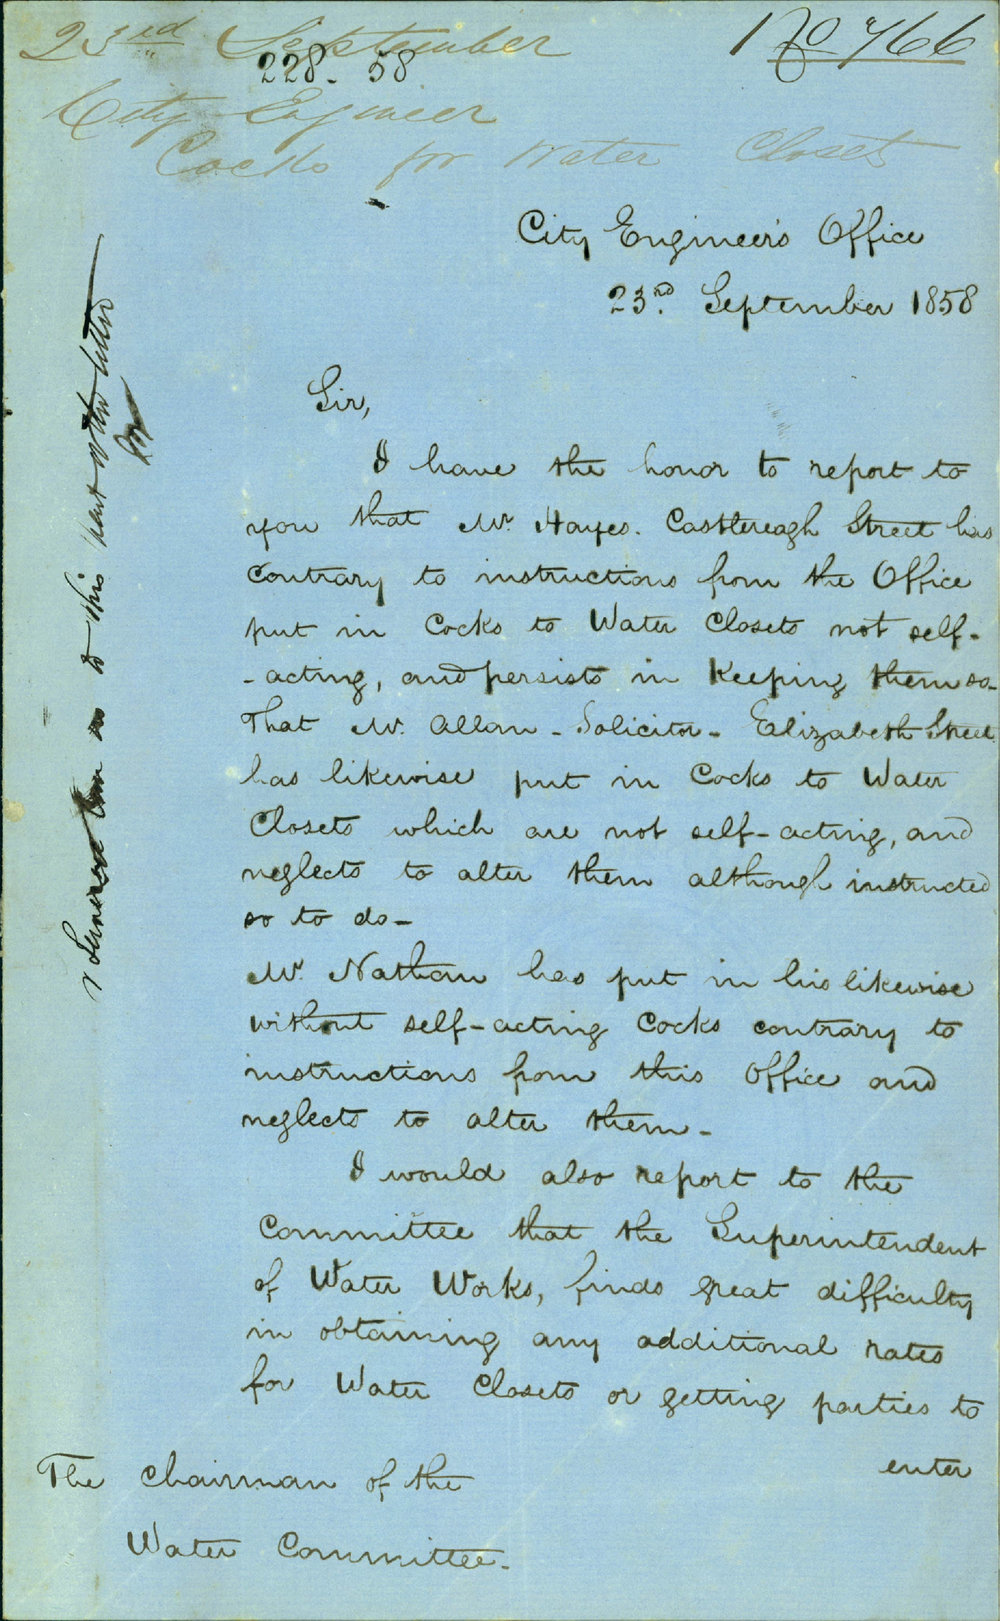 23rd September
No 766
228. 58
City Engineer
Cocks for Water Closets
City Engineer's Office
23rd September 1858
Sir,
I have the honor to report to
you that Mr. Hayes. Castlereagh Street has
contrary to instructions from the Office
put in Cocks to Water Closets not self-
-acting, and persists in keeping them so-
That Mr. Allan - Solicitor - Elizabeth Street
has likewise put in Cocks to Water
Closets which are not self-acting, and
neglects to alter them although instructed
so to do-
Mr. Nathan has put in his likewise
without self-acting Cocks contrary to
instructions from this Office and
neglects to alter them-
I would also report to the
Committee that the Superintendent
of Water Works, finds great difficulty
in obtaining any additional rates
for Water Closets or getting parties to
enter
The Chairman of the
Water Committee-
as to this
letter